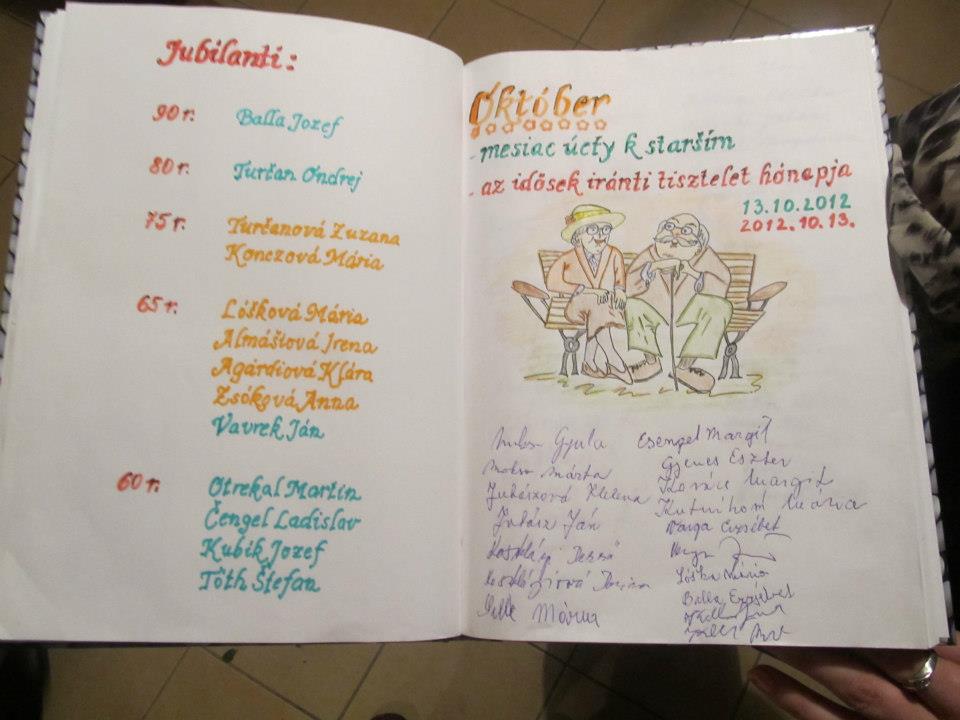 Jubilanti:
90 r. Balla Jozef
80 r. Turčan Ondrej
75 r. Turčanová Zuzana
Konczová Mária
65 r. Lóšková Mária
Almášiová Irena
Agárdiová Klára
Zsóková Anna
Vavrek Ján
60 r. Otrekal Martin
Čengel Ladislav
Kubik Jozef
Tóth Štefan
Október
- mesiac úcty k starším
- az idősek iránti tisztelet hónapja
13.10.2012
2012.10.13.
Gyula
Márta
Juhászová Helena
Juhász Ján
Mária
Csengel Margit
Gyenes Eszter
Kovács Margit
Mária
Varga Erzsébet
Lóška Mária
Balla Erzsébet